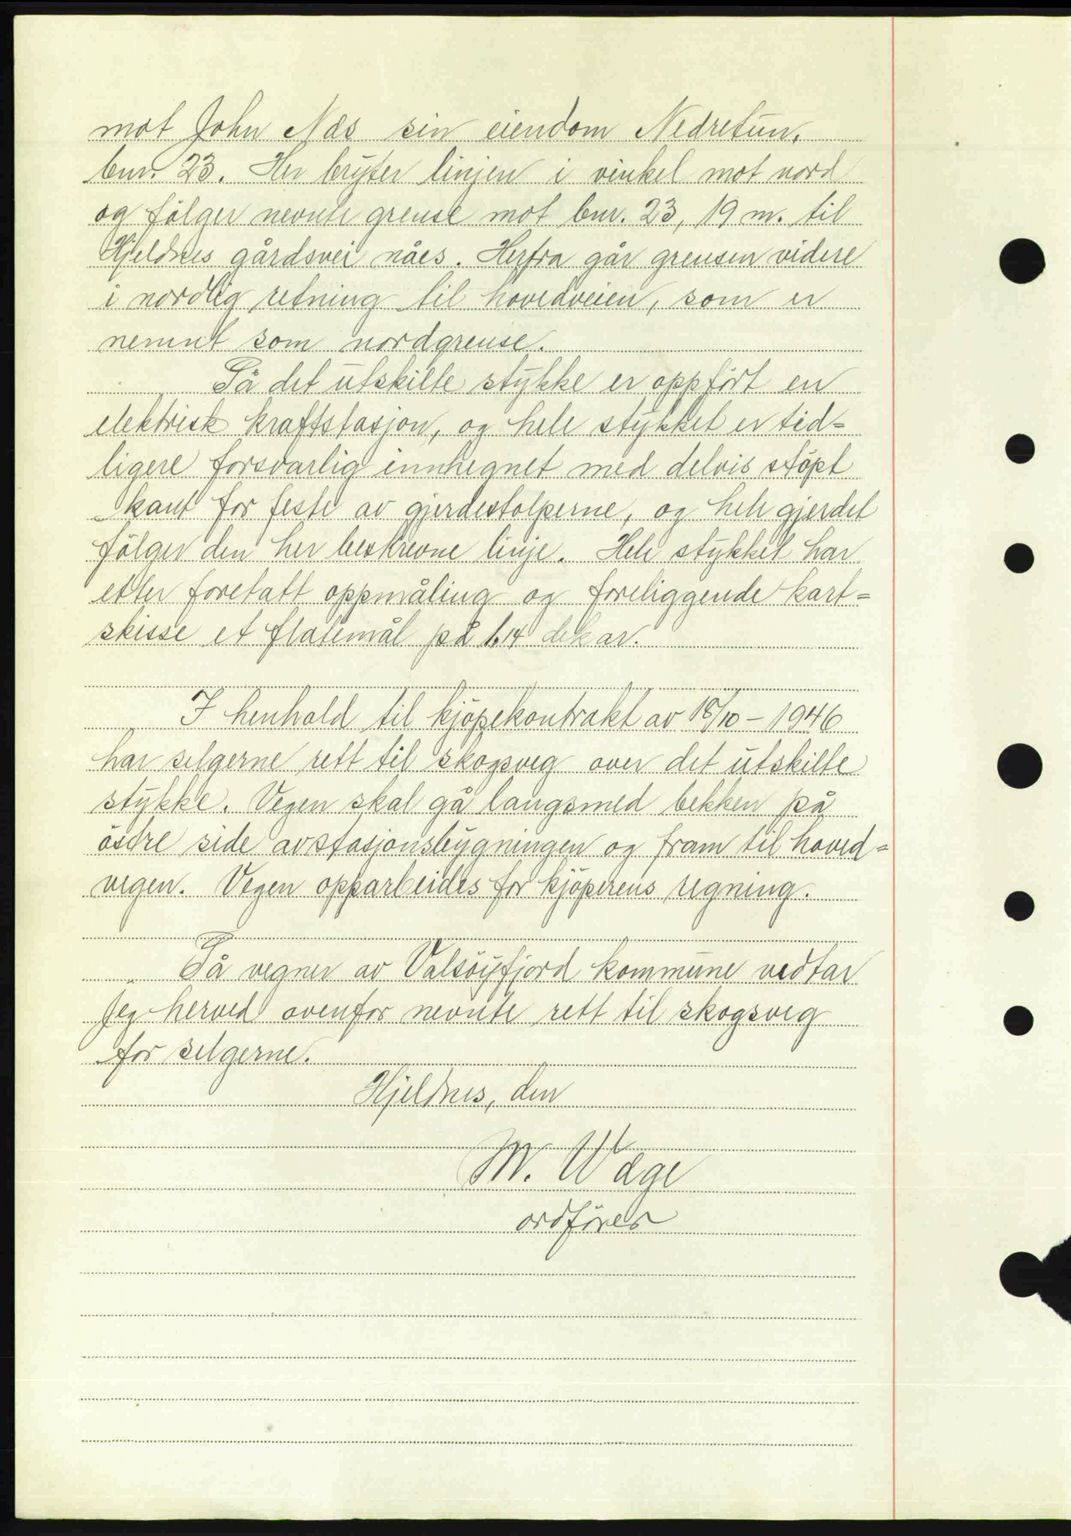 mot John Næs sin eiendom Nedretun,
bnr. 23. Her bryter linjen i vinkel mot nord
og følger nevnte grense mot bnr. 23, 19 m. til
Hjeldnes gårdsvei nåes. Herfra går grensen videre
i nordlig retning til hovedveien, som er
nemnt som nordgrense.
På det utskilte stykke er oppført en
elektrisk kraftstasjon, og hele stykket er tid=
ligere forsvarlig innhegnet med delvis støpt
kant for feste av gjerdestolperne, og hele gjerdet
følger den her beskrevne linje. Hele stykket har
etter foretatt oppmåling og foreliggende kart=
skisse et flatemål på 1,14 dekar.
I henhold til kjøpekontrakt av 18/10 - 1946
har selgerne rett til skogsveg over det utskilte
stykke. Vegen skal gå langsmed bekken på
østre side av stasjonsbygningen og fram til hoved=
vegen. Vegen opparbeides for kjøperens regning.
På vegner av Valsøyfjord kommune vedtar
jeg herved ovenfor nevnte rett til skogsveg
for selgerne.
Hjeldnes, den
M. Wæge
ordfører